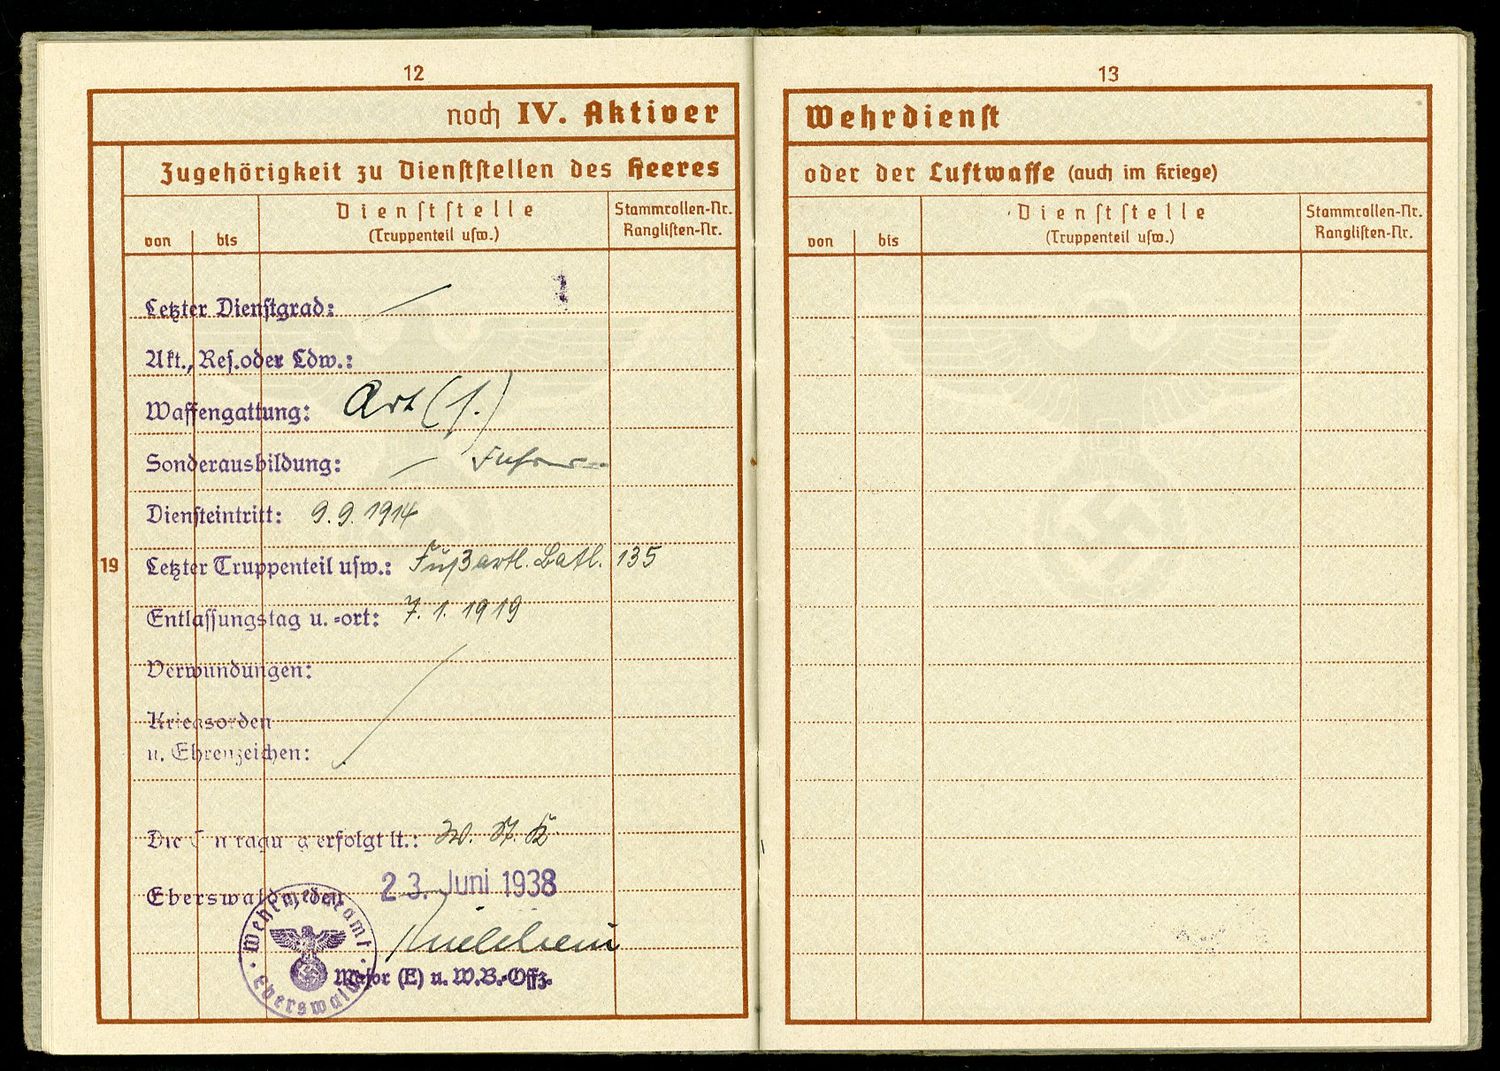 12
noch IV. Aktiver
Zugehörigkeit zu Dienststellen des Heeres
von
bis
Dienststelle
(Truppenteil usw.)
Stammrollen-Nr.
Ranglisten-Nr.
Letzter Dienstgrad:
Akt., Res. oder Ldw.:
Waffengattung: Art (f.)
Sonderausbildung:
Diensteintritt: 9. 9. 1914
19
Letzter Truppenteil usw.: Fußartl. Batl. 135
Entlassungstag u. -ort: 7. 1. 1919
Verwundungen:
Kriegsorden
u. Ehrenzeichen:
Die Eintragung erfolgt lt.: W. St. K
Eberswalde, den 23. Juni 1938
Wehrmeldeamt
Eberswalde
Major (E) u. W.B.-Offz.
13
Wehrdienst
oder der Luftwaffe (auch im Kriege)
von
bis
Dienststelle
(Truppenteil usw.)
Stammrollen-Nr.
Ranglisten-Nr.